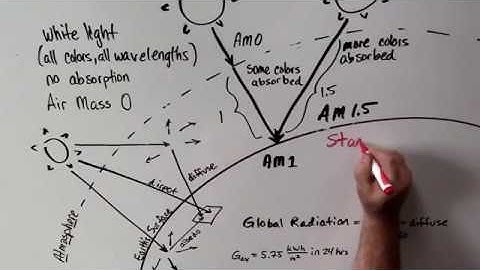 White light
(all colors, all wavelengths)
no absorption
Air Mass 0
AM0
some colors
absorbed
more colors
absorbed
1
1.5
AM 1.5
AM1
Stan
diffuse
direct
albedo
Atmosphere
Earth's Surface
Global Radiation = diffuse
= 5.75 kWh/m² in 24 hrs